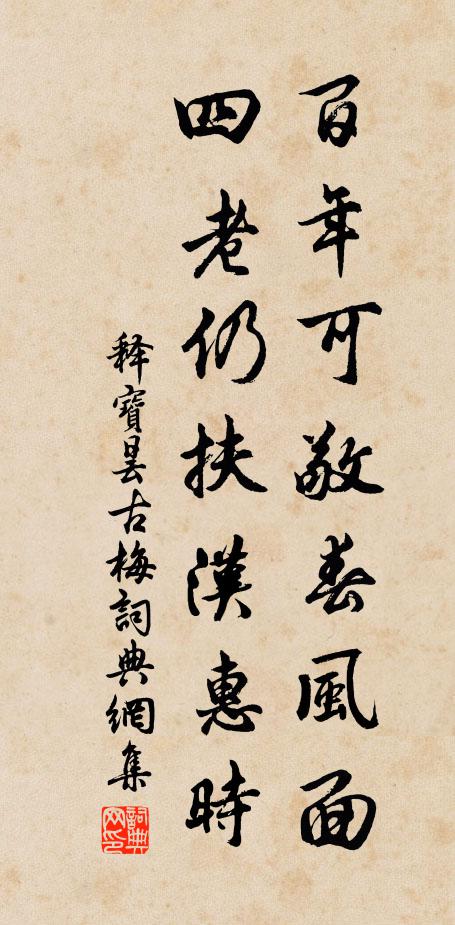 百年可敬春風面
四老仍扶漢惠時
釋寶曇古梅詞典網集
詞典網印